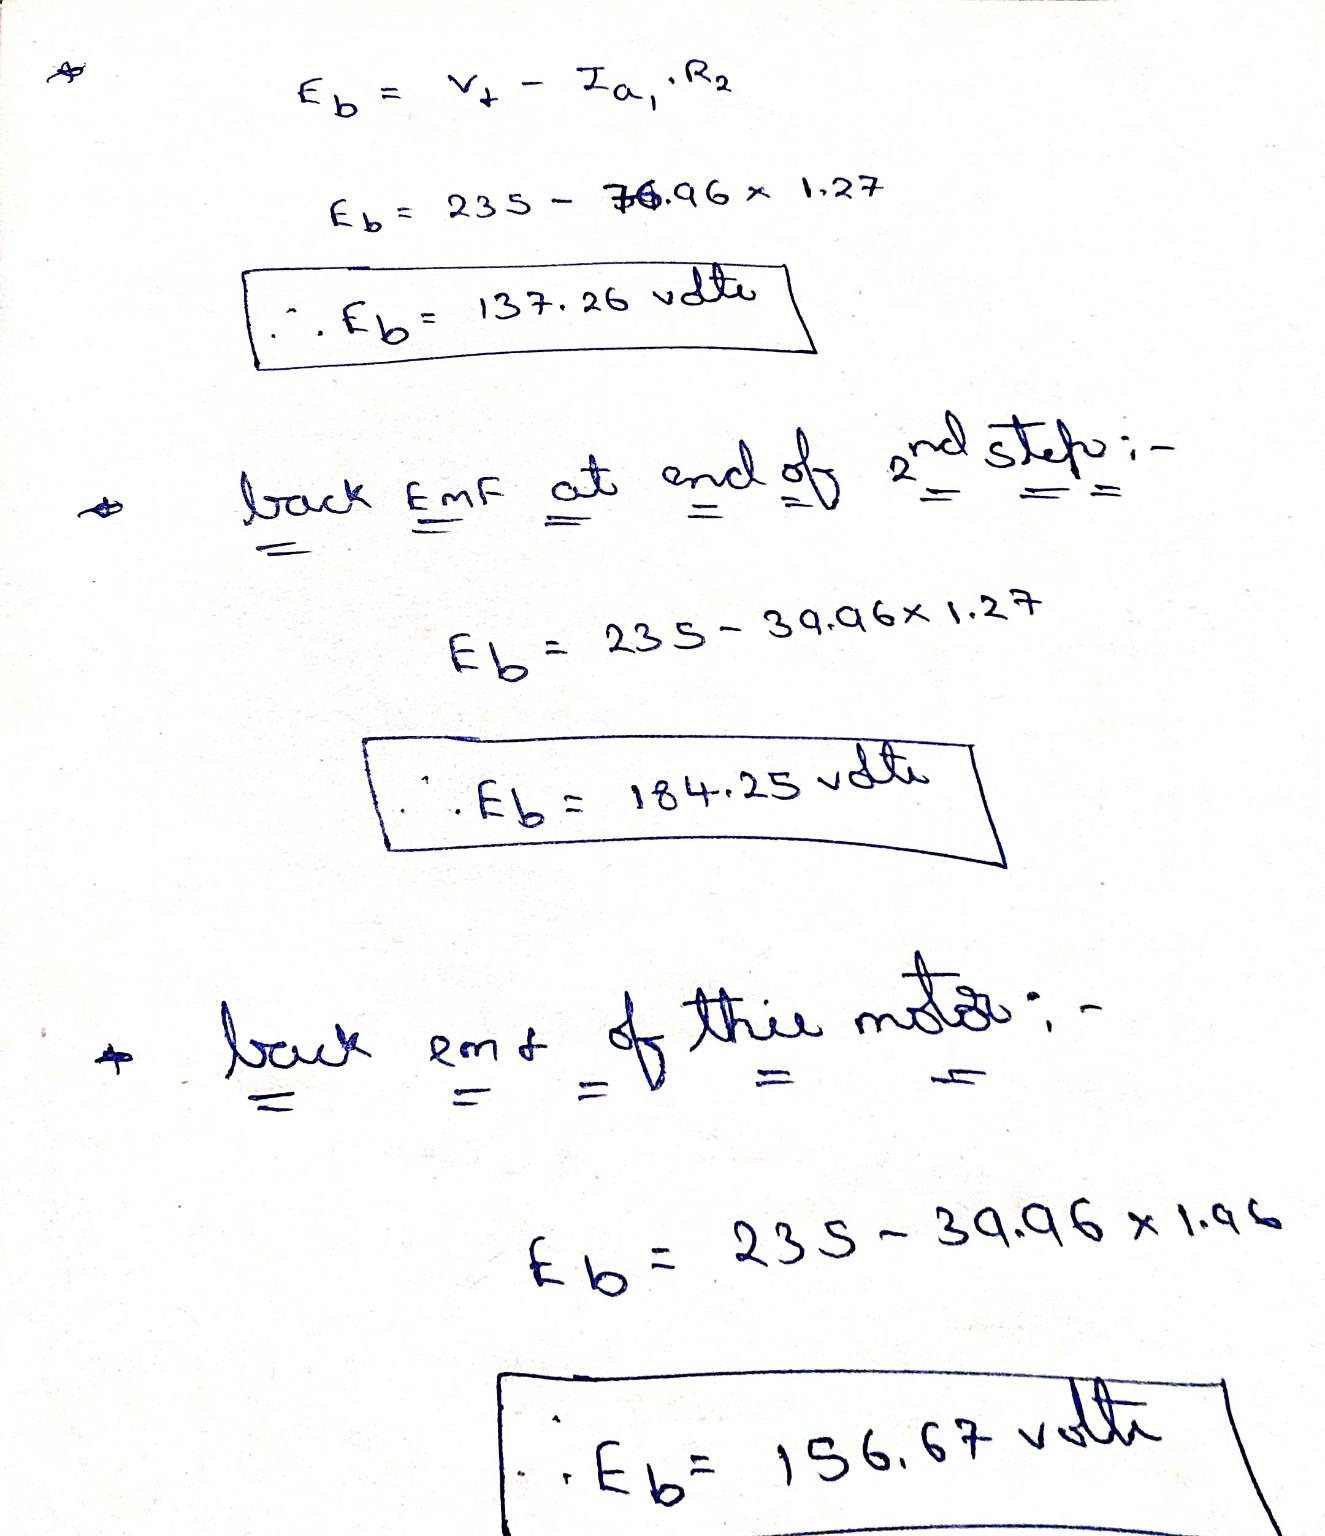 * Eb = Vt - Ia1 . R2
Eb = 235 - 76.96 × 1.27
∴ Eb = 137.26 volts
* back EMF at end of 2nd step :-
Eb = 235 - 39.96 × 1.27
∴ Eb = 184.25 volts
* back emf of this motor :-
Eb = 235 - 39.96 × 1.96
∴ Eb = 156.67 volts